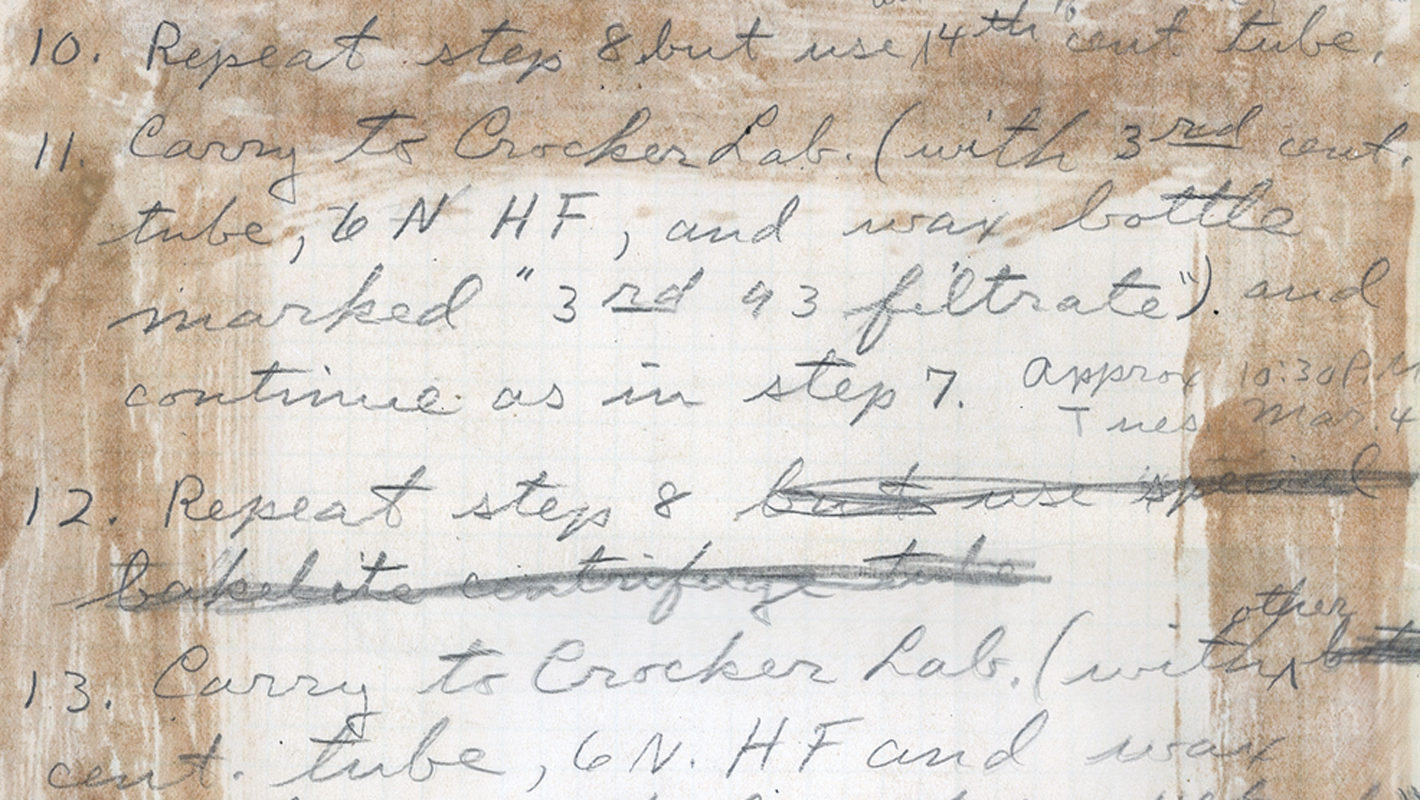 10. Repeat step 8 but use 14th cent tube.
11. Carry to Crocker Lab. (with 3rd cent.
tube, 6 N HF, and wax bottle
marked "3rd 93 filtrate") and
continue as in step 7. Approx 10:30 P.M
Tues Mar. 4
12. Repeat step 8 but use special
bakelite centrifuge tube
other
13. Carry to Crocker Lab. (with
cent. tube, 6 N. HF and wax